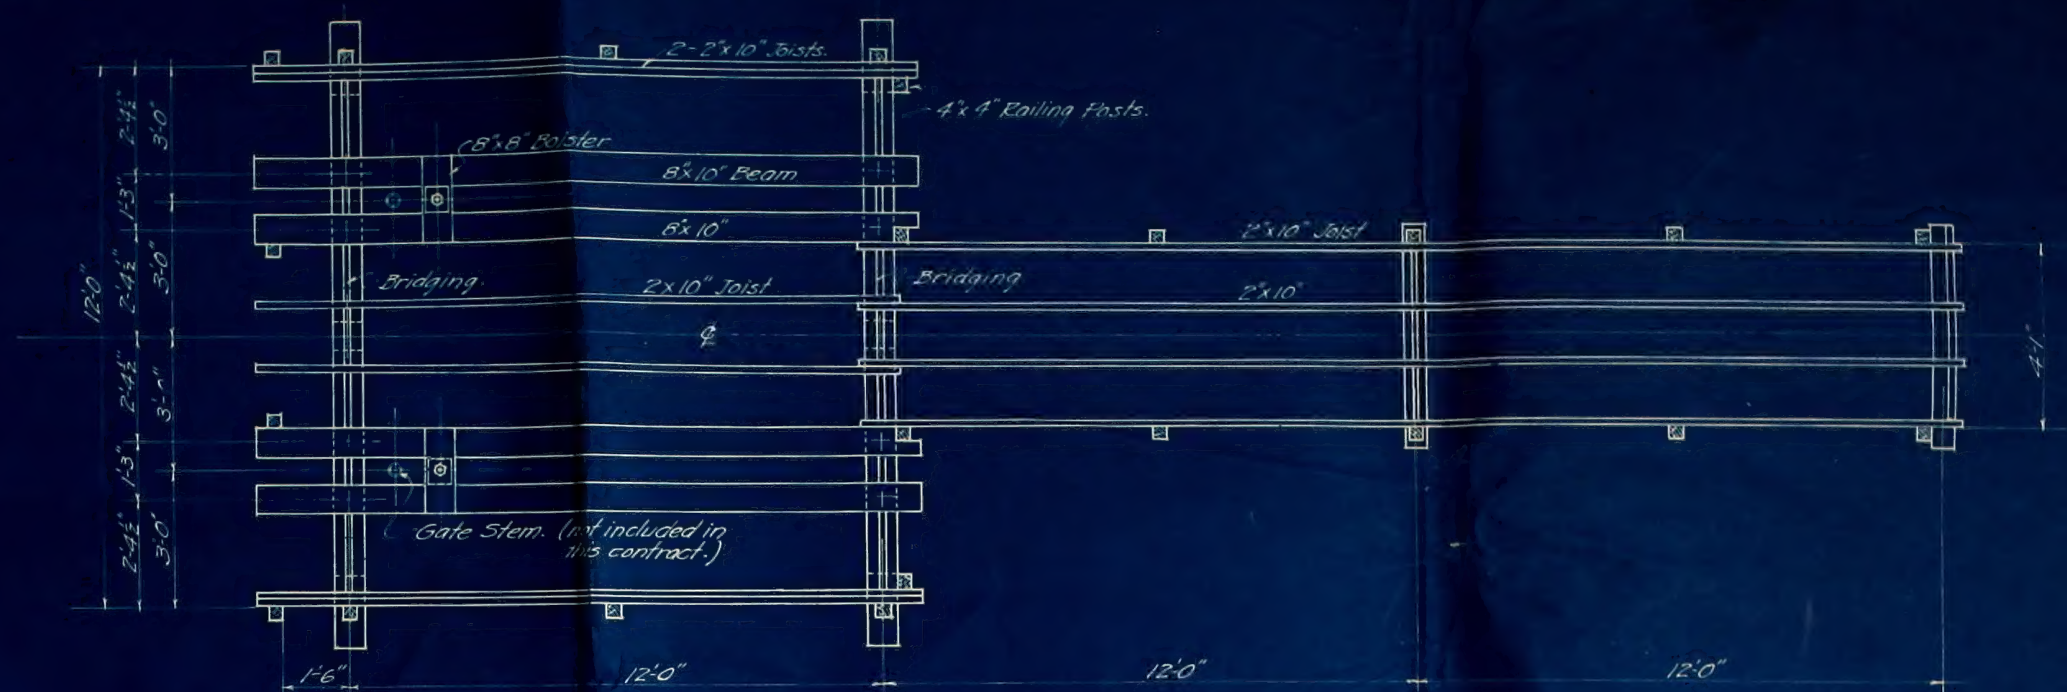 2-2"x10" Joists.
4"x4" Railing Posts.
8"x8" Bolster
8"x10" Beam
8"x10"
2"x10" Joist
Bridging.
2x10" Joist
Bridging
2"x10"
℄
Gate Stem. (not included in
this contract.)
12'-0"
2'-4½"
1'-3"
2'-4½"
2'-4½"
1'-3"
2'-4½"
3'-0"
3'-0"
3'-0"
3'-0"
4'-1"
1'-6"
12'-0"
12'-0"
12'-0"